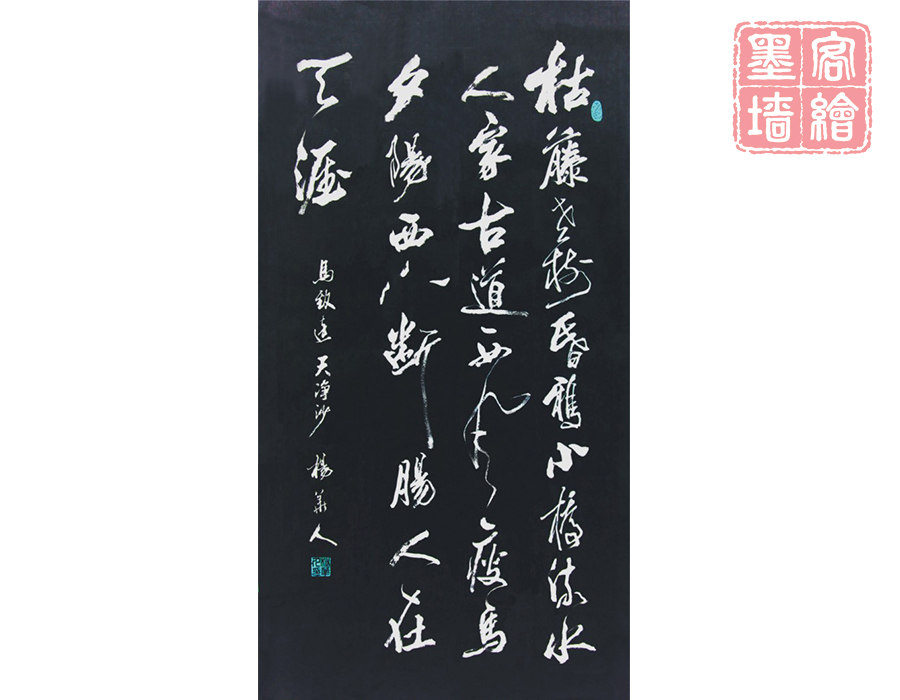 枯藤老樹昏鴉小橋流水
人家古道西風瘦馬
夕陽西下斷腸人在
天涯
馬致遠天净沙 楊華人
客繪
墨墙